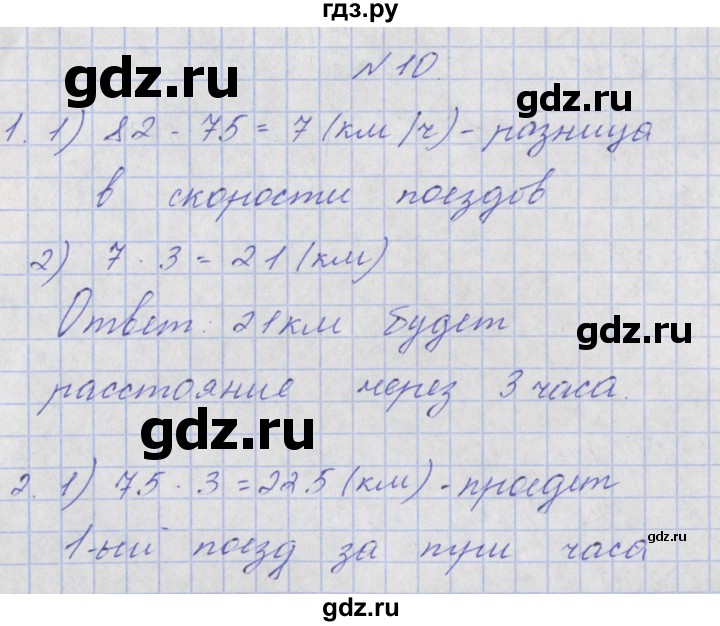 гдз.ру
gdz.ru
№10.
gdz.ru
1. 1) 82 - 75 = 7 (км/ч) - разница
в скорости поездов
2) 7 · 3 = 21 (км)
Ответ: 21 км будет
gdz.ru
расстояние через 3 часа.
gdz.ru
2. 1) 75 · 3 = 225 (км) - проедет
1-ый поезд за три часа
gdz.ru
gdz.ru